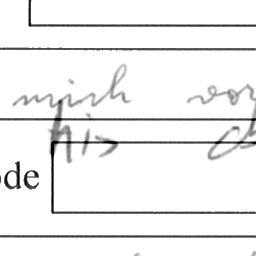 mich vor
his
ode